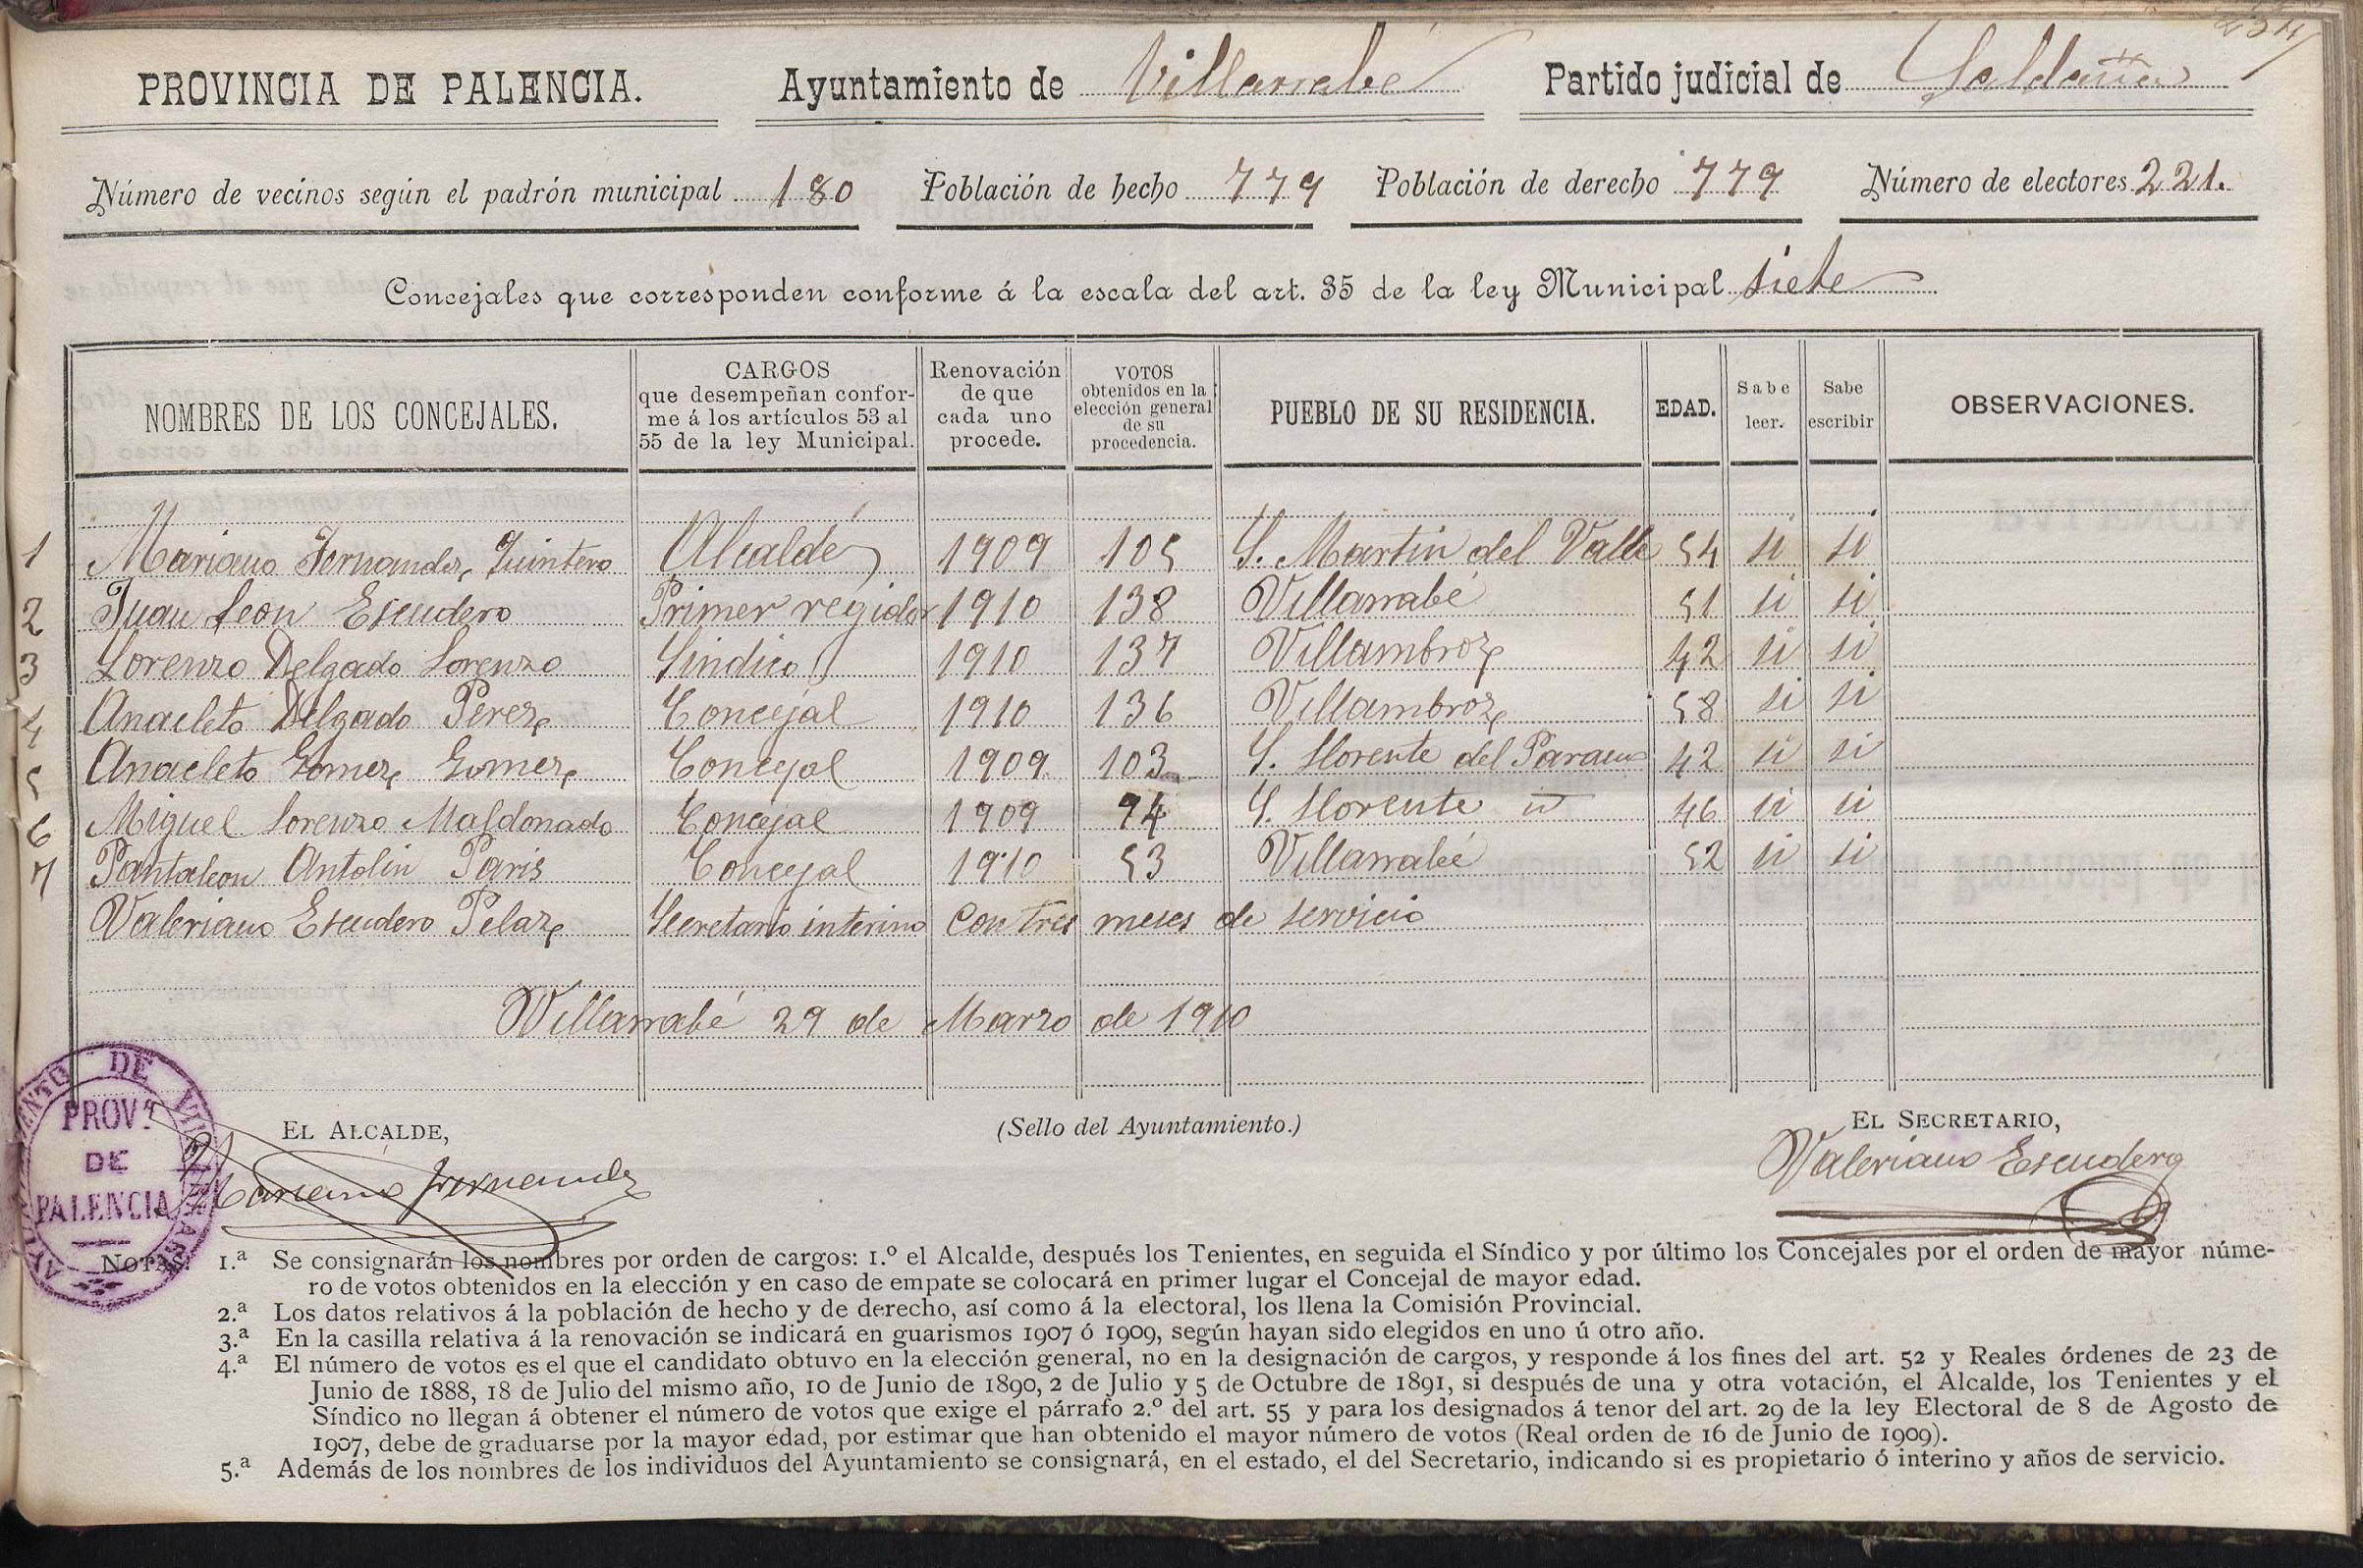 234
PROVINCIA DE PALENCIA. Ayuntamiento de Villarrabé Partido judicial de Saldaña
Número de vecinos según el padrón municipal 180 Población de hecho 779 Población de derecho 779 Número de electores 221.
Concejales que corresponden conforme á la escala del art. 35 de la ley Municipal siete
NOMBRES DE LOS CONCEJALES. CARGOS que desempeñan confor-me á los artículos 53 al 55 de la ley Municipal. Renovación de que cada uno procede. VOTOS obtenidos en la elección general de su procedencia. PUEBLO DE SU RESIDENCIA. EDAD. Sabe leer. Sabe escribir OBSERVACIONES.
1 Mariano Fernandez Quintero Alcalde 1909 105 S. Martin del Valle 54 si si
2 Juan Leon Escudero Primer regidor 1910 138 Villarrabé 51 si si
3 Lorenzo Delgado Lorenzo Sindico 1910 137 Villambroz 42 si si
4 Anacleto Delgado Perez Concejal 1910 136 Villambroz 58 si si
5 Anacleto Gomez Gomez Concejal 1909 103 S. Llorente del Paramo 42 si si
6 Miguel Lorenzo Maldonado Concejal 1909 94 S. Llorente 46 si si
7 Pantaleon Antolin Paris Concejal 1910 53 Villarrabé 52 si si
Valeriano Escudero Pelaz Secretario interino con tres meses de servicio
Villarrabé 29 de Marzo de 1910
AYUNTAMIENTO DE VILLARRABÉ
PROVª DE PALENCIA
EL ALCALDE, (Sello del Ayuntamiento.) EL SECRETARIO,
Mariano Fernandez Valeriano Escudero
NOTAS. 1.ª Se consignarán los nombres por orden de cargos: 1.º el Alcalde, después los Tenientes, en seguida el Síndico y por último los Concejales por el orden de mayor núme-
ro de votos obtenidos en la elección y en caso de empate se colocará en primer lugar el Concejal de mayor edad.
2.ª Los datos relativos á la población de hecho y de derecho, así como á la electoral, los llena la Comisión Provincial.
3.ª En la casilla relativa á la renovación se indicará en guarismos 1907 ó 1909, según hayan sido elegidos en uno ú otro año.
4.ª El número de votos es el que el candidato obtuvo en la elección general, no en la designación de cargos, y responde á los fines del art. 52 y Reales órdenes de 23 de
Junio de 1888, 18 de Julio del mismo año, 10 de Junio de 1890, 2 de Julio y 5 de Octubre de 1891, si después de una y otra votación, el Alcalde, los Tenientes y el
Síndico no llegan á obtener el número de votos que exige el párrafo 2.º del art. 55 y para los designados á tenor del art. 29 de la ley Electoral de 8 de Agosto de
1907, debe de graduarse por la mayor edad, por estimar que han obtenido el mayor número de votos (Real orden de 16 de Junio de 1909).
5.ª Además de los nombres de los individuos del Ayuntamiento se consignará, en el estado, el del Secretario, indicando si es propietario ó interino y años de servicio.